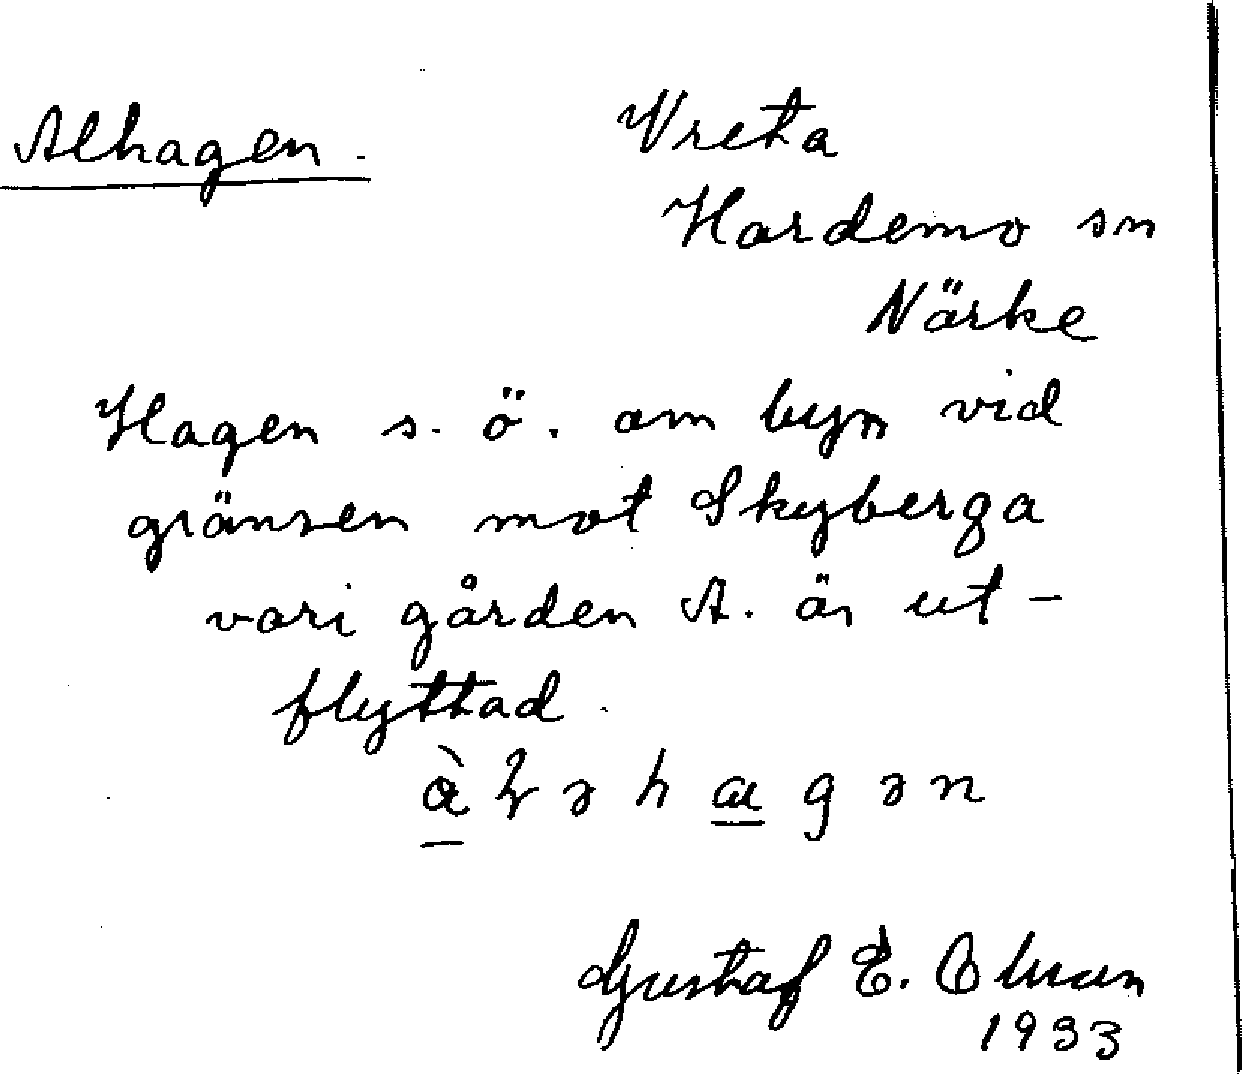 Alhagen.
Vreta
Hardemo sn
Närke
Hagen s. ö. om byn vid
gränsen mot Skyberga
vari gården A. är ut-
flyttad.
Gustaf E.
1933